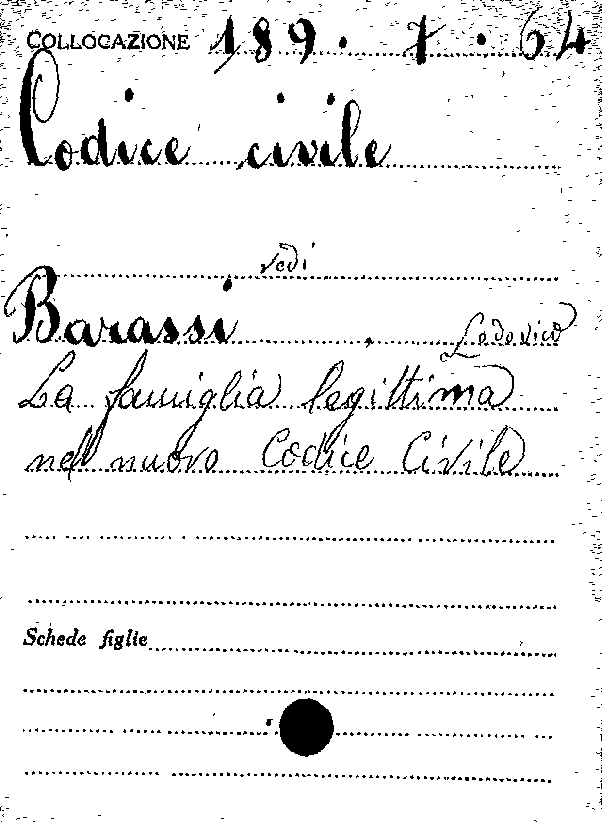 COLLOCAZIONE 189. 7. 64
Codice civile
vedi
Barassi, Lodovico
La famiglia legittima
nel nuovo Codice Civile
Schede figlie